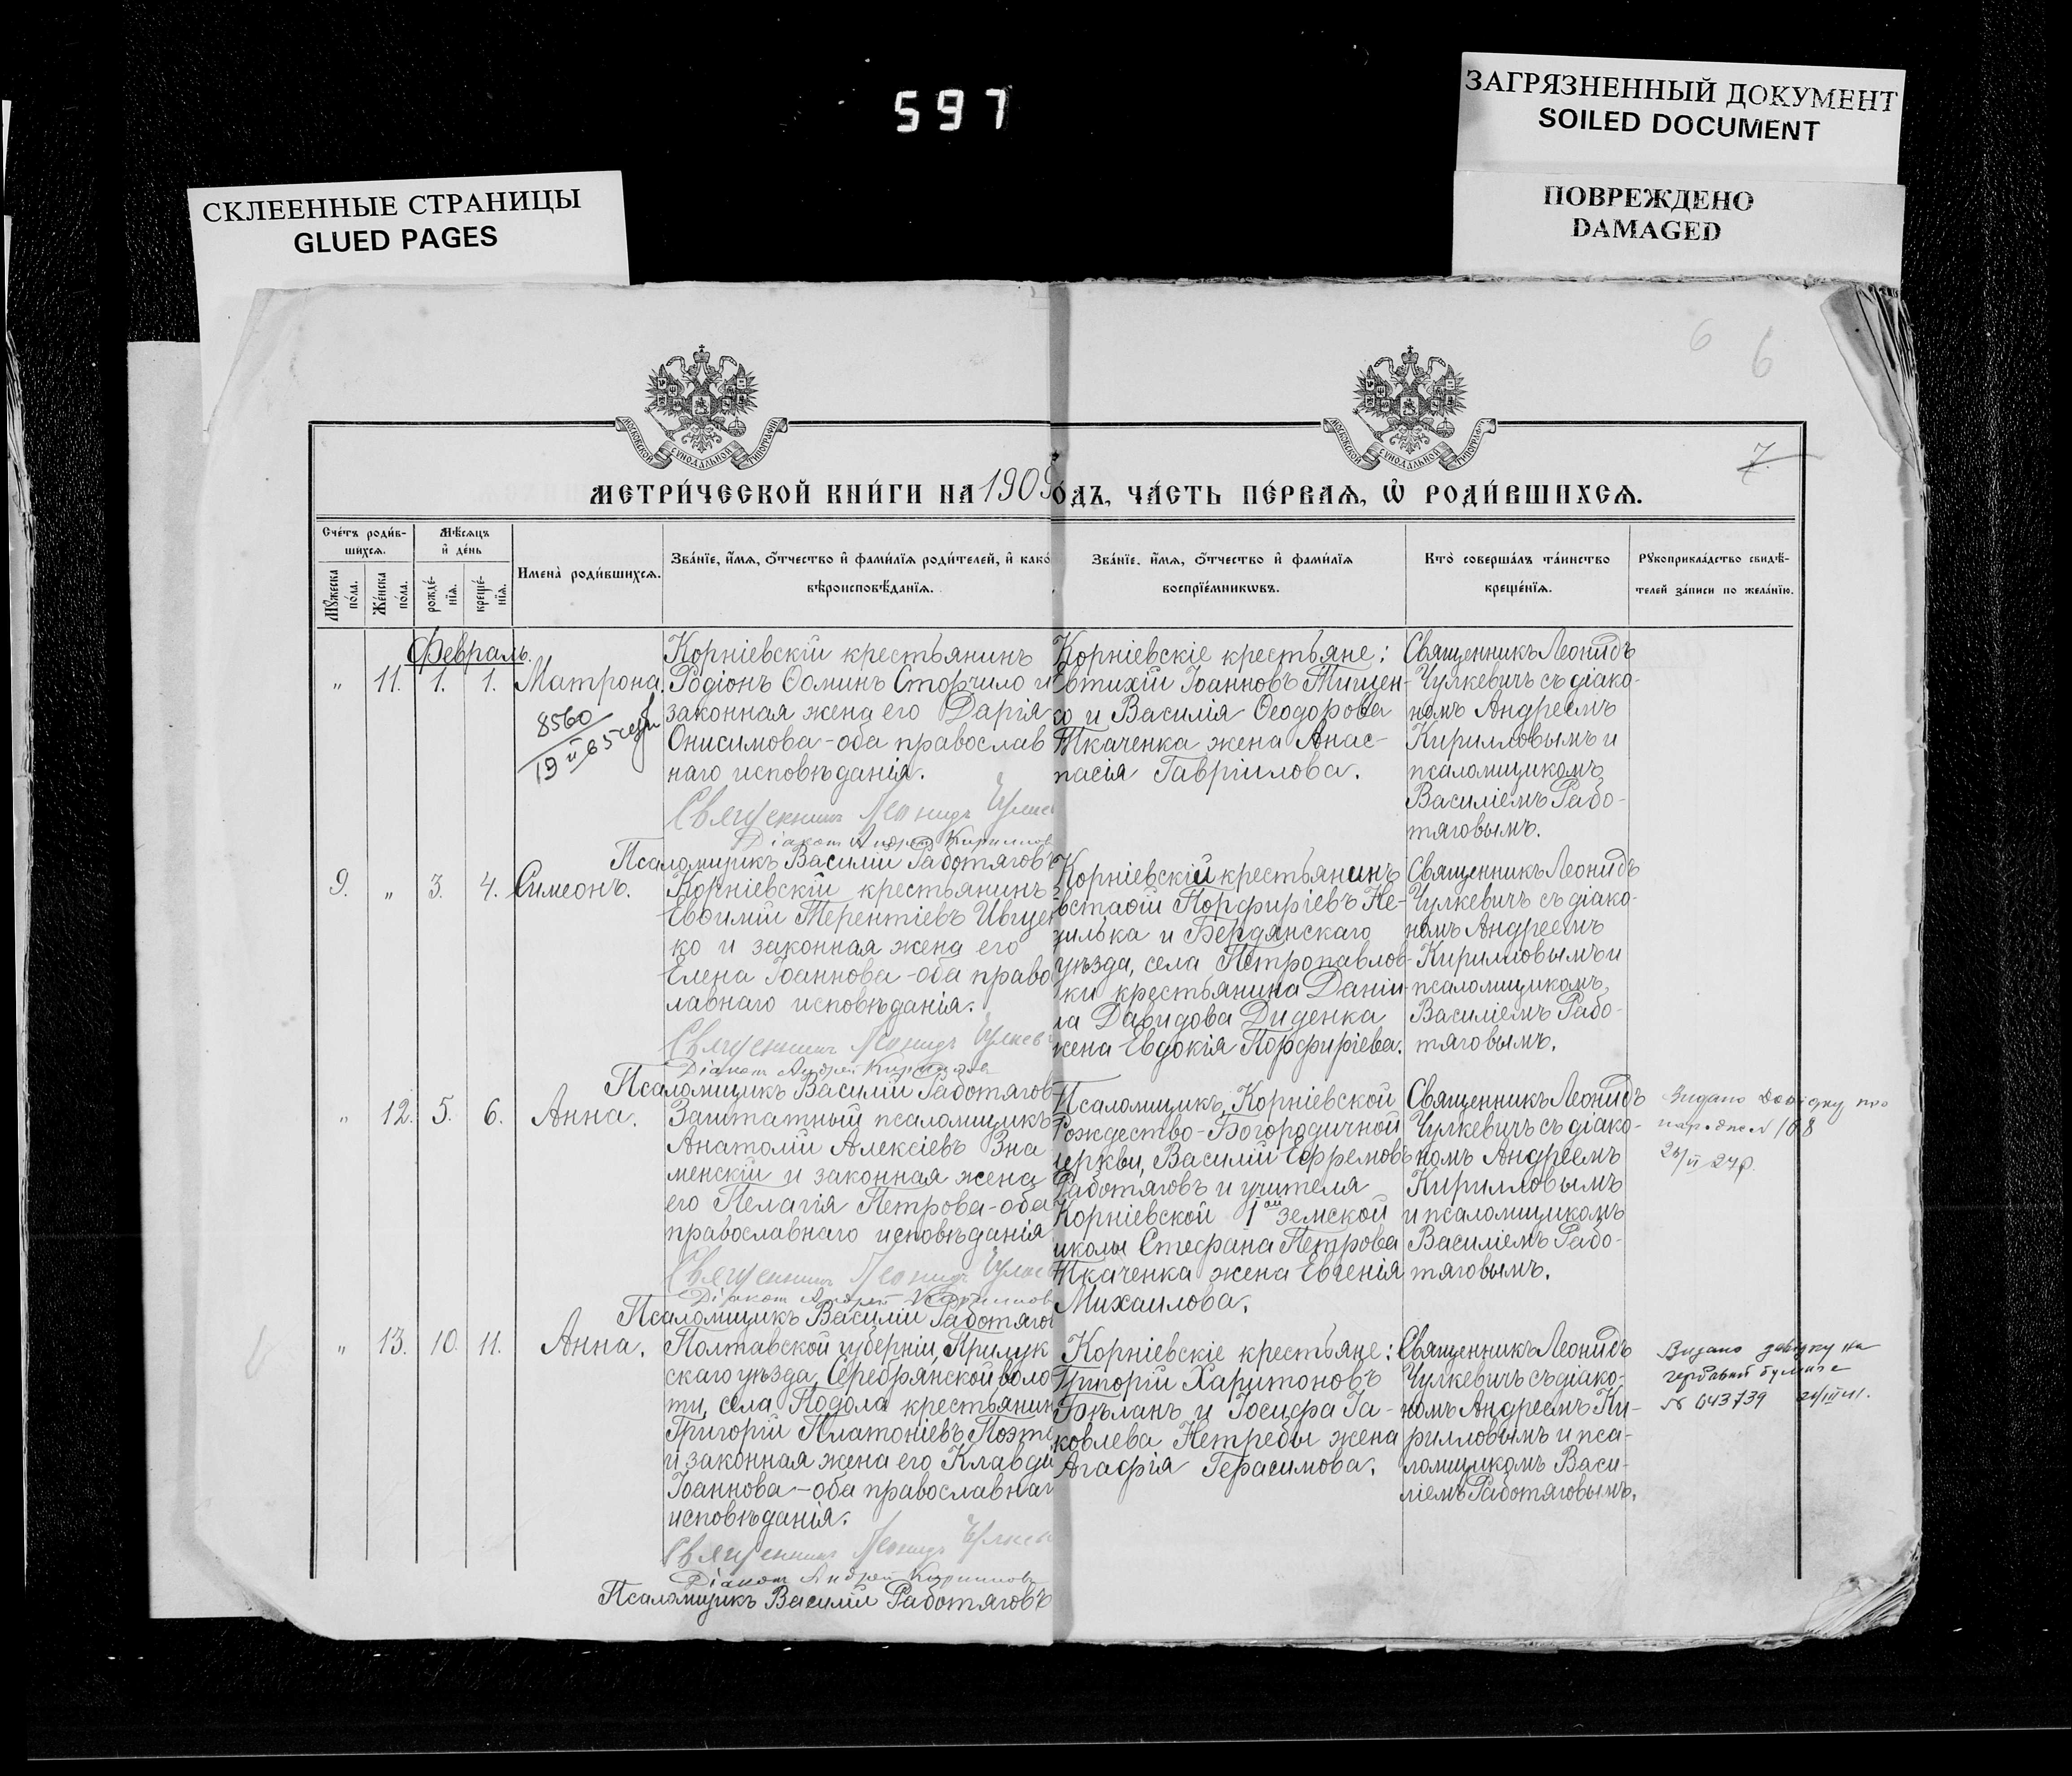 597
ЗАГРЯЗНЕННЫЙ ДОКУМЕНТ
SOILED DOCUMENT
ПОВРЕЖДЕНО
DAMAGED
СКЛЕЕННЫЕ СТРАНИЦЫ
GLUED PAGES
6 6
МОСКОВСКОЙ СѴНОДАЛЬНОЙ ТИПОГРАФІИ
МОСКОВСКОЙ СѴНОДАЛЬНОЙ ТИПОГРАФ
7.
МЕТРИ́ЧЕСКОЙ КНИ́ГИ НА 1909
О́ДЪ, ЧА́СТЬ ПЕ́РВАѦ, Ѡ҆ РОДИ́ВШИХСѦ.
Сче́тъ роди́в-
шихсѧ.
Мꙋ́жеска по́ла.
Же́нска по́ла.
Мѣ́сѧцъ
и҆ де́нь
рожде́-
нїѧ.
креще́-
нїѧ.
Имена̀ роди́вшихсѧ.
Зва́нїе, и҆́мѧ, ѻ҆́тчество и҆ фами́лїѧ роди́телей, и҆ како́
вѣроисповѣ́данїѧ.
Зва́нїе, и҆́мѧ, ѻ҆́тчество и҆ фами́лїѧ
воспрїе́мникѡвъ.
Кто̀ соверша́лъ та́инство
креще́нїѧ.
Рꙋкоприкла́дство свидѣ́-
телей за́писи по жела́нїю.
Февраль.
" 11. 1. 1. Матрона.
8560
Корніевскій крестьянинъ
Родіонъ Ѳоминъ Сторчило и
законная жена его Дарія
Онисимова - оба православ
наго исповѣданія.
Священникъ Леонидъ
Діаконъ Андрей Кириллов
Псаломщикъ Василій Работяговъ
Корніевскіе крестьяне:
Евтихій Іоанновъ Тищен-
ко и Василія Ѳеодорова
Ткаченка жена Анас-
тасія Гавріилова.
Священникъ Леонидъ
Чулкевичъ съ діако-
номъ Андреемъ
Кирилловымъ и
псаломщикомъ
Василіемъ Рабо-
тяговымъ.
9. " 3. 4. Симеонъ.
Корніевскій крестьянинъ
Евѳимій Терентіевъ Иващен
ко и законная жена его
Елена Іоаннова - оба право
лавнаго исповѣданія.
Священникъ Леонидъ
Діаконъ Андрей Кириллов
Псаломщикъ Василій Работягов
Корніевскій крестьянинъ
встаѳій Порфиріевъ Не-
и Бердянскаго
уѣзда, села Петропавлов-
ки крестьянина Даніи-
ла Давидова Диденка
жена Евдокія Порфиріева.
Священникъ Леонидъ
Чулкевичъ съ діако-
номъ Андреемъ
Кирилловымъ и
псаломщикомъ
Василіемъ Рабо-
тяговымъ.
" 12. 5. 6. Анна.
Заштатный псаломщикъ
Анатолій Алексіевъ Зна
менскій и законная жена
его Пелагія Петрова - оба
православнаго исповѣданія
Священникъ Леонидъ
Діаконъ Андрей Кириллов
Псаломщикъ Василій Работягов
Псаломщикъ, Корніевской
Рождество-Богородичной
церкви, Василій Ефремовъ
Работяговъ и учителя
Корніевской 1ой земской
школы Стефана Петрова
Ткаченка жена Евгенія
Михаилова.
Священникъ Леонидъ
Чулкевичъ съ діако-
номъ Андреемъ
Кирилловымъ
и псаломщикомъ
Василіемъ Рабо-
тяговымъ.
Видано довідку
108
" 13. 10. 11. Анна.
Полтавской губерніи, Прилук
скаго уѣзда, Серебрянской воло
ти, села Подола крестьянин
Григорій Платоніевъ
и законная жена его Клавдія
Іоаннова - оба православнаг
исповѣданія.
Священникъ Леонидъ
Діаконъ Андрей Кириллов
Псаломщикъ Василій Работяговъ
Корніевскіе крестьяне:
Григорій Харитоновъ
Бѣланъ и Іосифа Іа-
ковлева Нетребы жена
Агафія Герасимова.
Священникъ Леонидъ
Чулкевичъ съ діако-
номъ Андреемъ Ки-
рилловымъ и пса-
ломщикомъ Васи-
ліемъ Работяговымъ.
Видано довідку на
гербовой бумаге
№ 043739